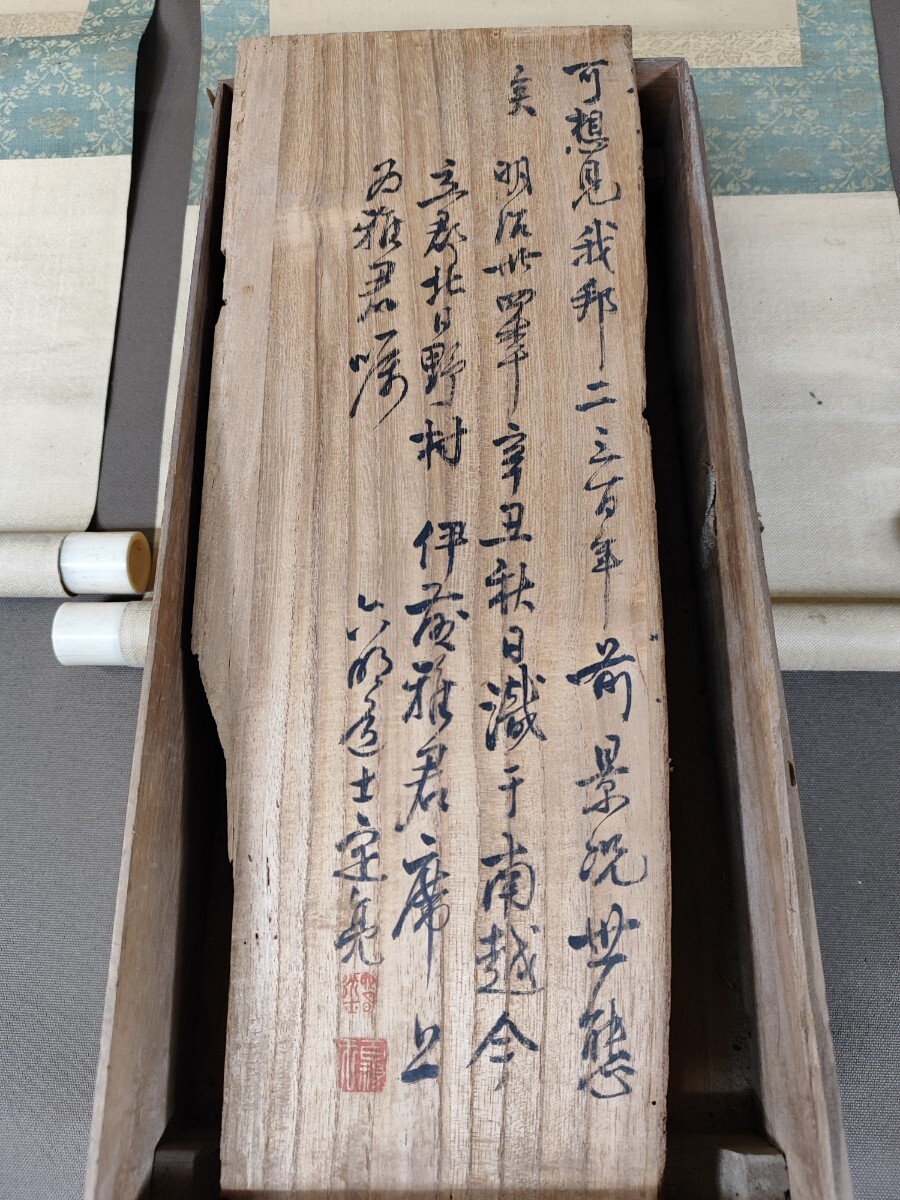 可想見我邦二三百年前景況世態
矣 明治卅四年辛丑秋日識于南越今
立郡北日野村 伊藤雅君席上
为雅君嘱
士定亮